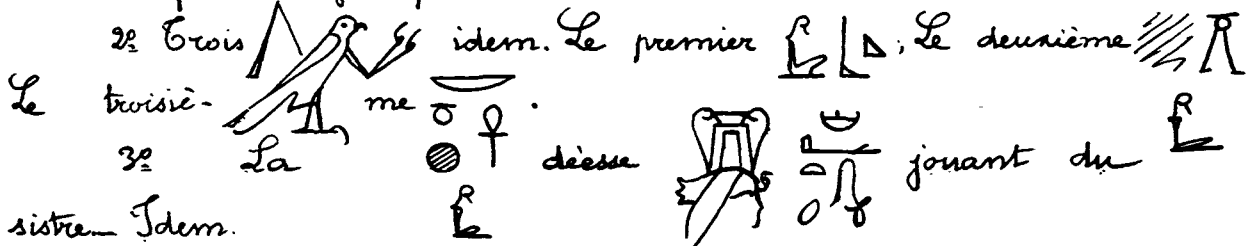 2º Trois idem. Le premier ; Le deuxième
Le troisiè- me .
3º La déesse jouant du
sistre_ Idem.